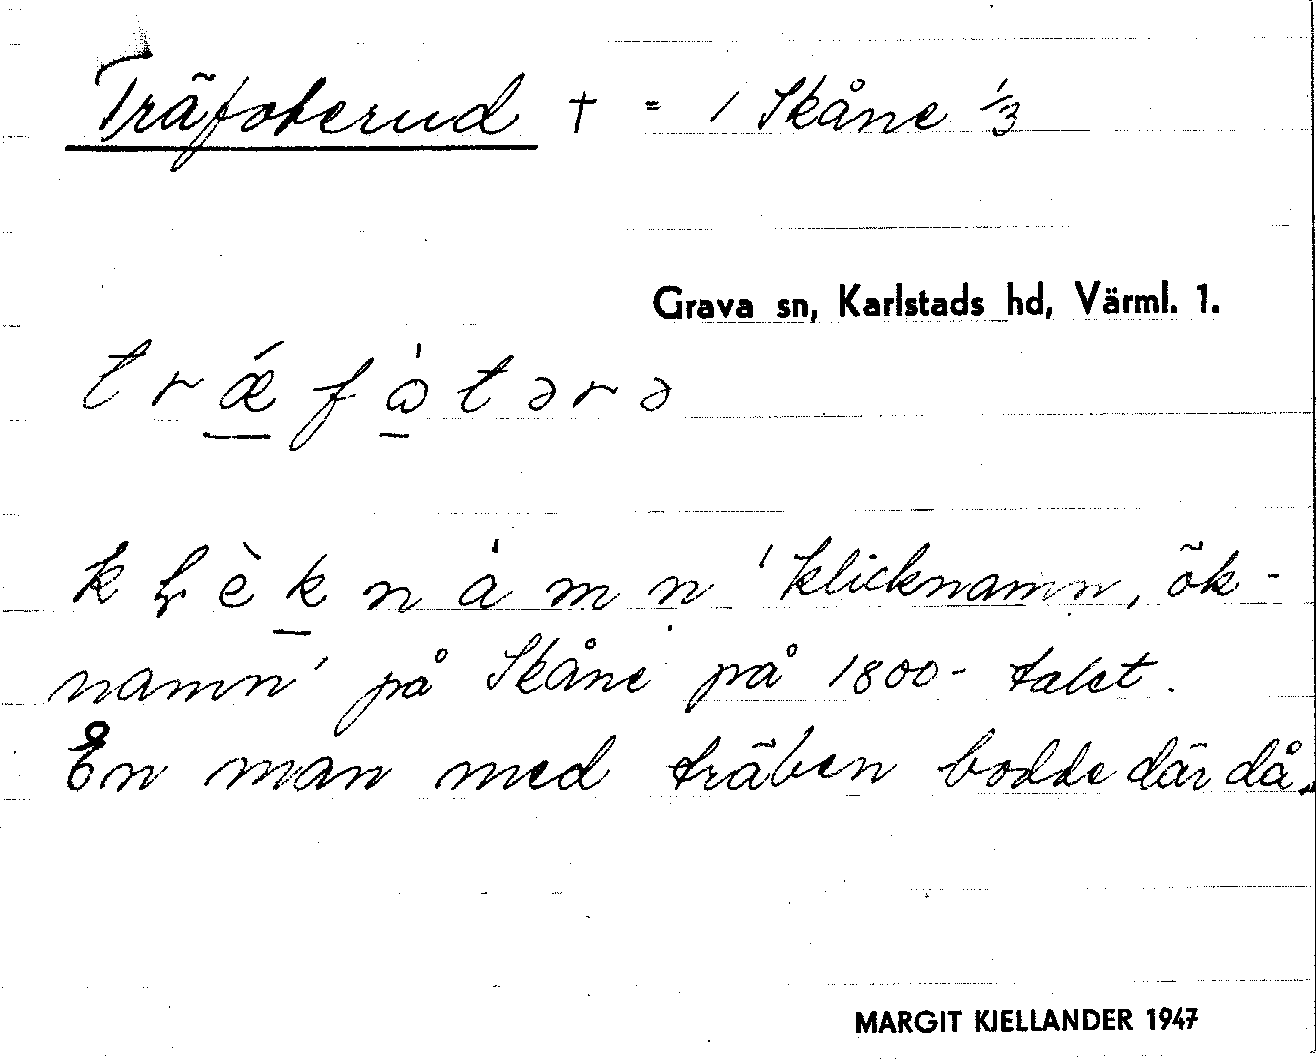 Träfoterud † = / Skåne 1/3
Grava sn, Karlstads hd, Värml. 1.
trǽfὰtərə
kḷèknàmn 'klicknamn, ök-
namn' på Skåne på 1800-talet.
En man med träben bodde där då.
MARGIT KJELLANDER 1947